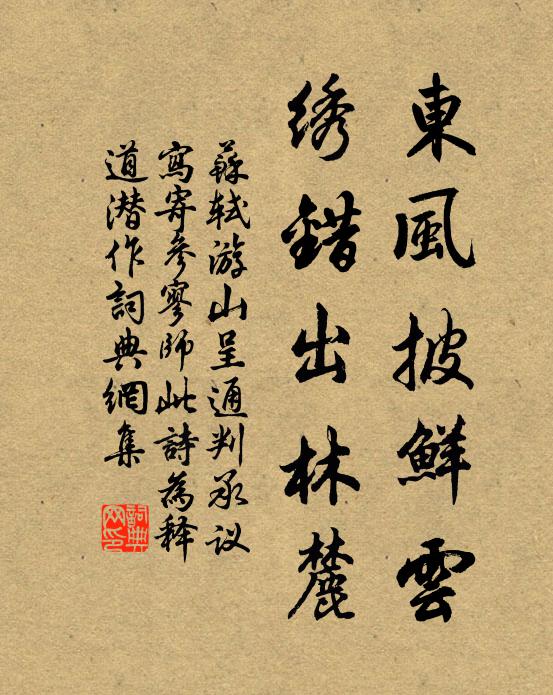 東風披鮮雲
绣錯出林麓
蘇軾游山呈通判承议
寫寄參寥師此詩為释
道潜作詞典網集
詞典网印